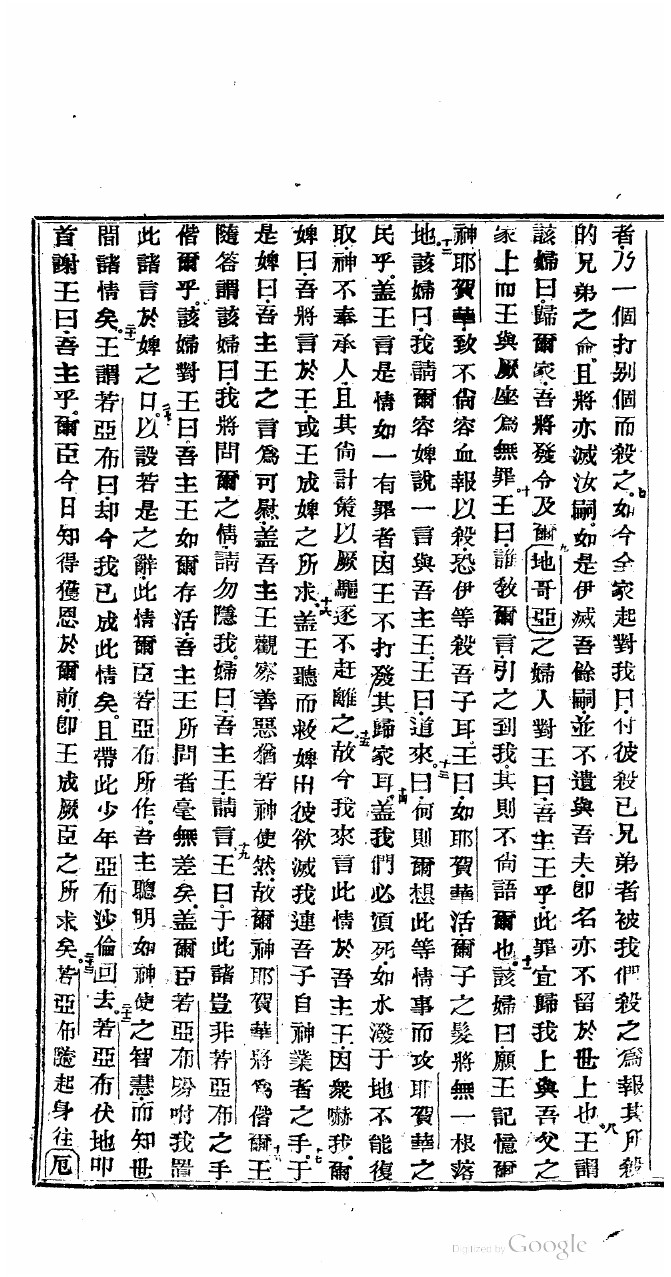 者乃一個打别個而殺之七如今全家起對我曰付彼殺已兄弟者被我們殺之爲報其所殺
的兄弟之命且將亦滅汝嗣如是伊滅吾餘嗣並不遺與吾夫卽名亦不留於世上也八王謂
該婦曰歸爾家吾將發令及爾九地哥亞之婦人對王曰吾主王乎此罪宜歸我上與吾父之
家上而王與厥座爲無罪十王曰誰敎爾言引之到我其則不尙語爾也十一該婦曰願王記憶爾
神耶賀華致不尙容血報以殺恐伊等殺吾子耳王曰如耶賀華活爾子之髮將無一根落
地十二該婦曰我請爾容婢說一言與吾主王王曰道來十三曰何則爾想此等情事而攻耶賀華之
民乎蓋王言是情如一有罪者因王不打發其歸家耳十四蓋我們必須死如水潑于地不能復
取神不奉承人且其尙計策以厥驅逐不赶離之十五故今我來言此情於吾主王因衆嚇我爾
婢曰吾將言於王或王成婢之所求十六蓋王聽而救婢出彼欲滅我連吾子自神業者之手十七于
是婢曰吾主王之言爲可慰蓋吾主王觀察善惡猶若神使然故爾神耶賀華將爲偕爾十八王
隨答謂該婦曰我將問爾之情請勿隱我婦曰吾主王請言十九王曰于此諸豈非若亞布之手
偕爾乎該婦對王曰吾主王如爾存活吾主王所問者毫無差矣蓋爾臣若亞布吩咐我置
此諸言於婢之口二十以設若是之辭此情爾臣若亞布所作吾主聰明如神使之智慧而知世
間諸情矣二十一王謂若亞布曰却今我已成此情矣且帶此少年亞布沙倫回去二十二若亞布伏地叩
首謝王曰吾主乎爾臣今日知得獲恩於爾前卽王成厥臣之所求矣二十三若亞布隨起身往厄
Digitized by Google